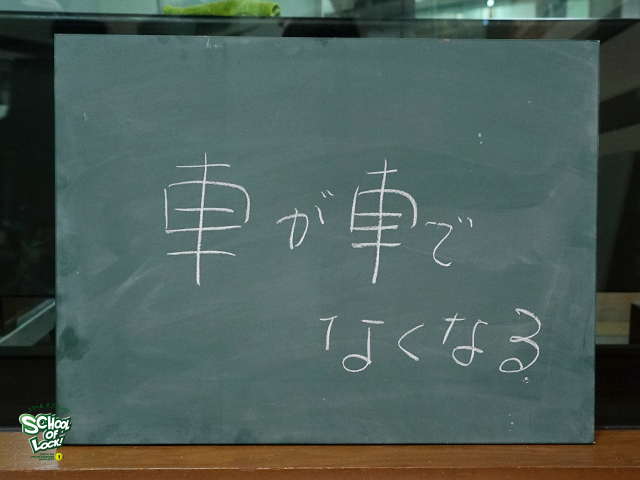 車が車で
なくなる
SCHOOL
OF
LOCK!